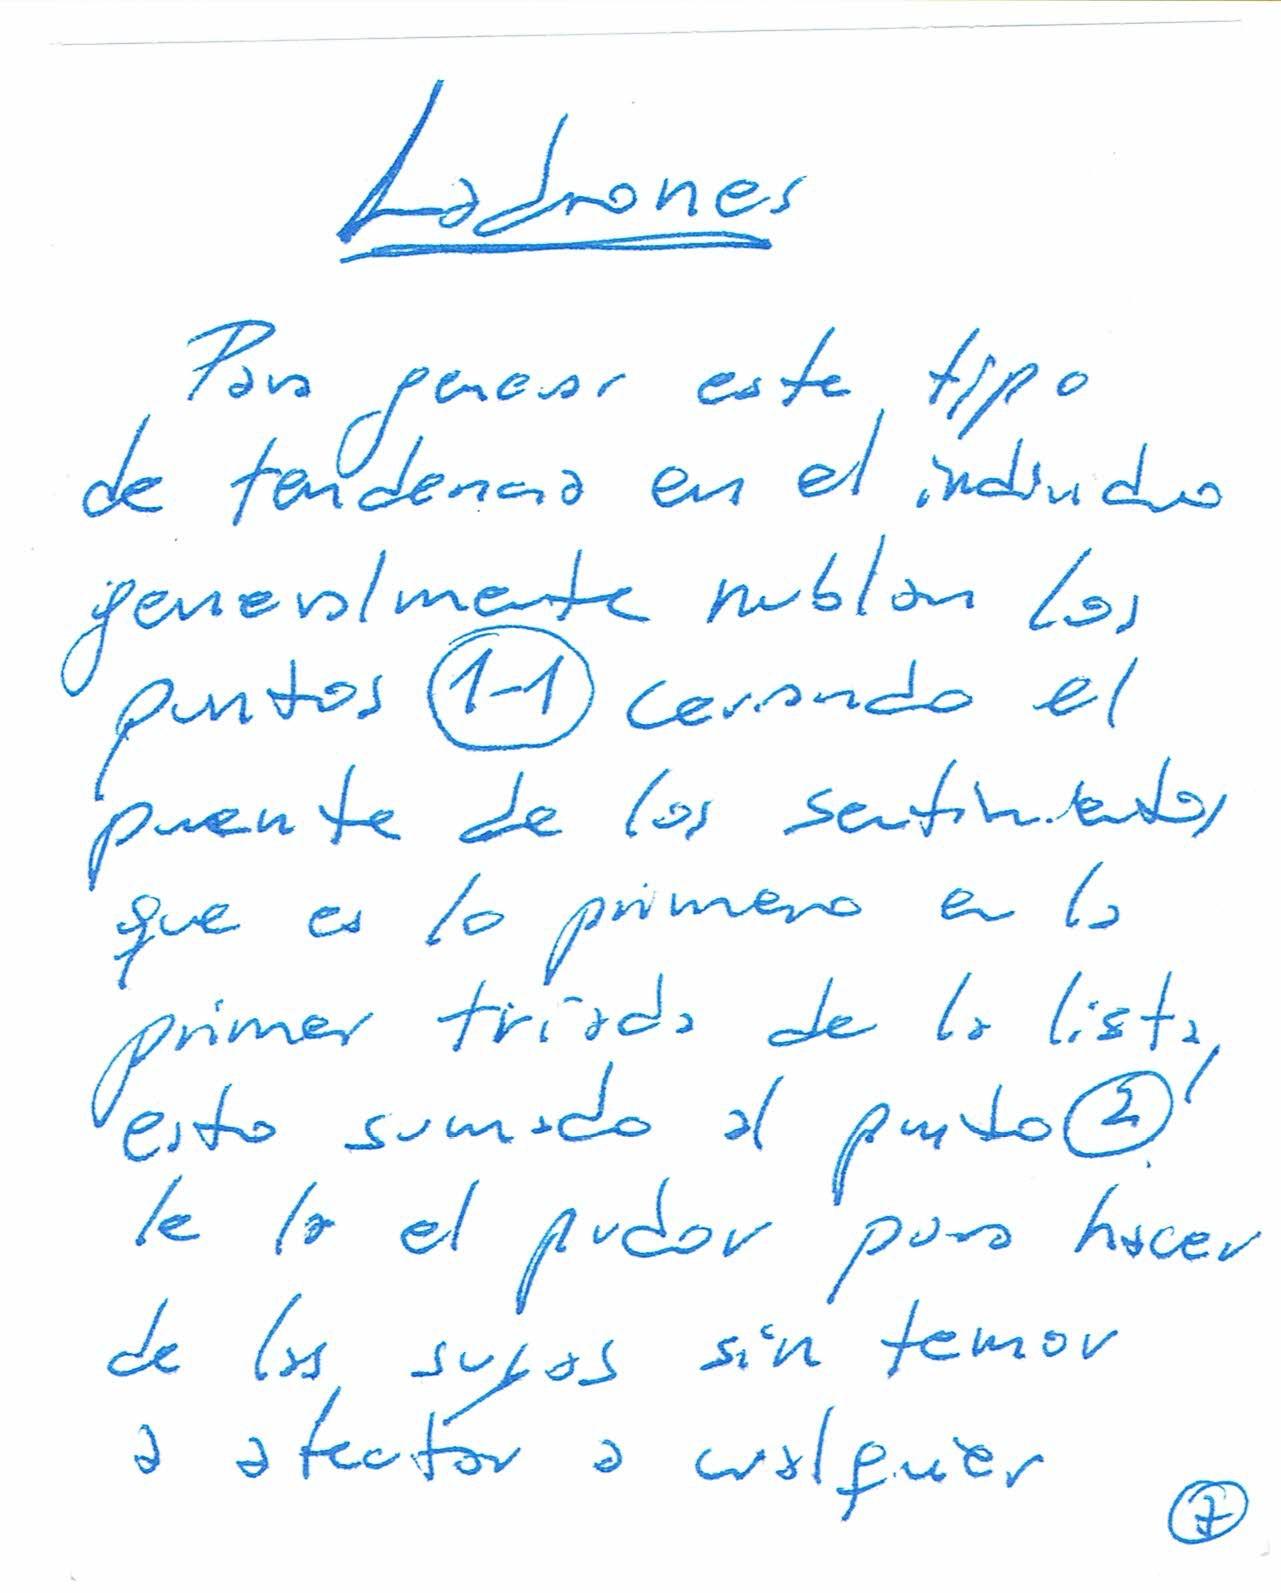 Ladrones
Para generar este tipo
de tendencia en el individuo
generalmente nublan los
puntos (1-1) cerrando el
puente de los sentimientos
que es lo primero en la
primer tríada de la lista,
esto sumado al punto (2)
le la el pudor para hacer
de las suyas sin temor
a afectar a cualquier
7